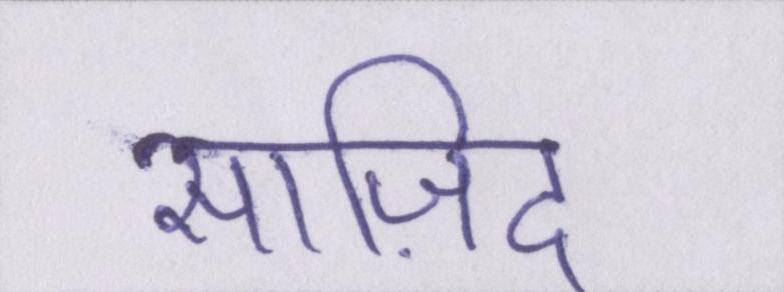 साज़िद